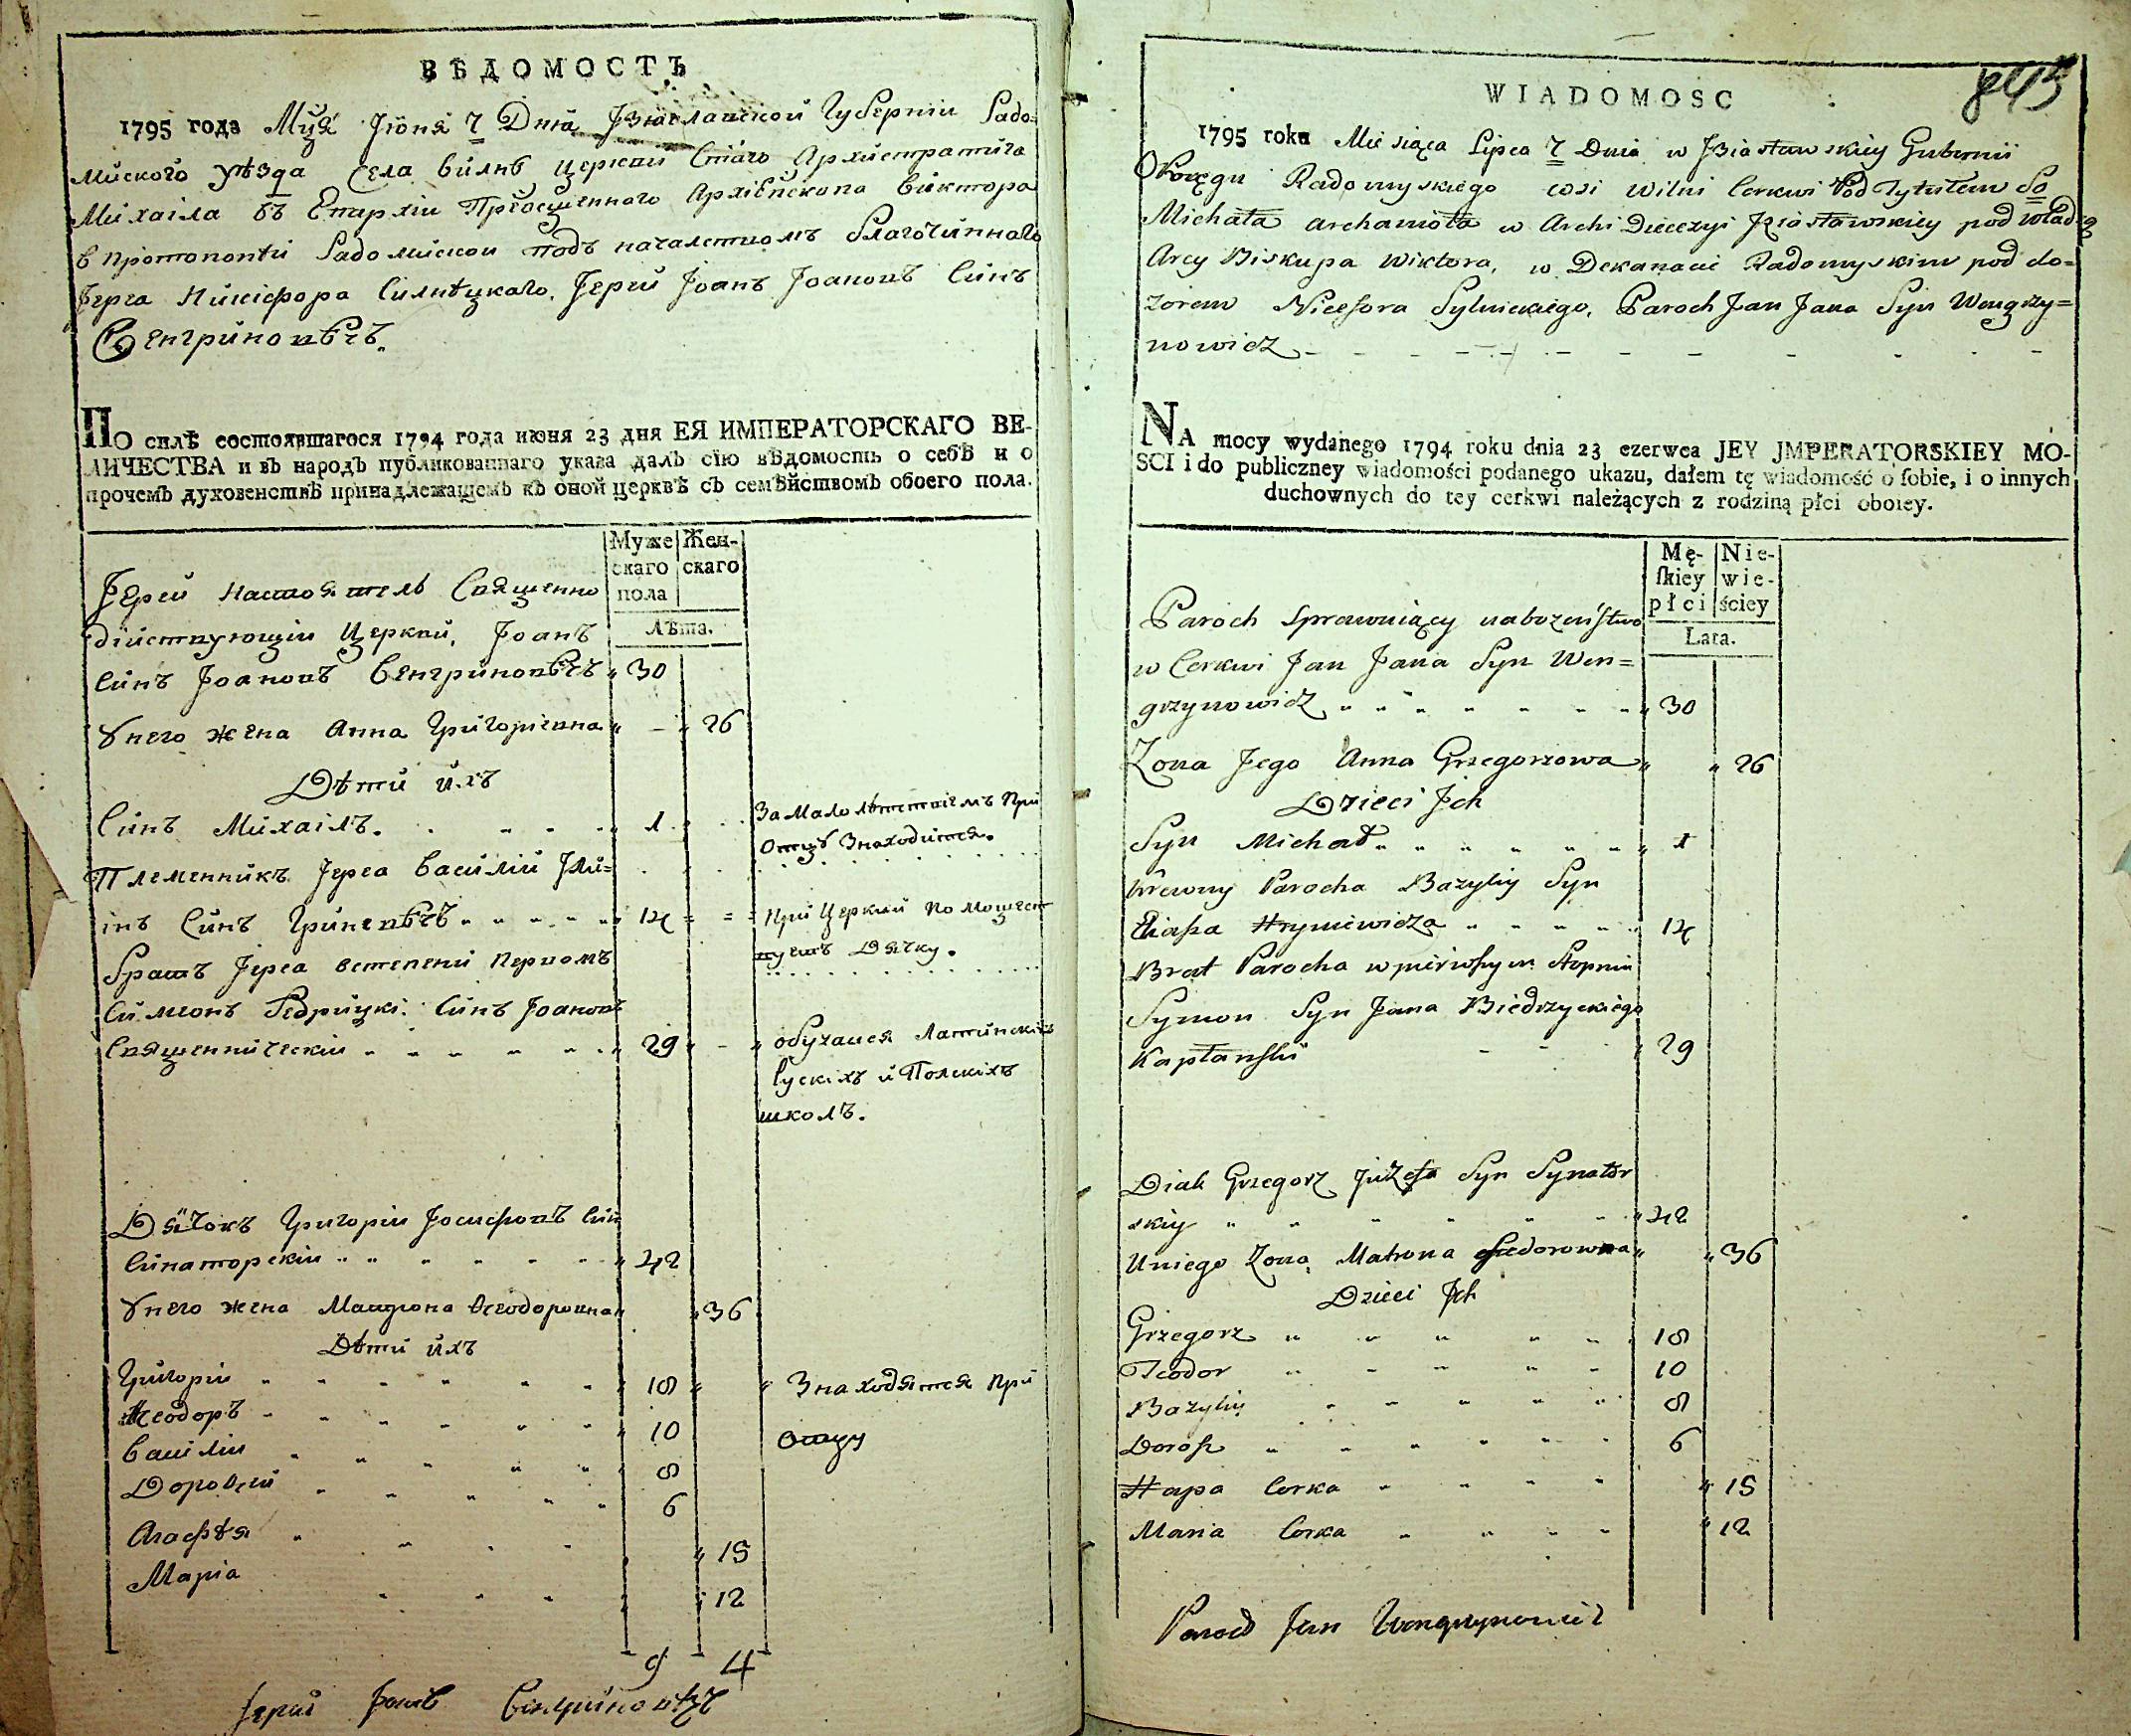 ВѢДОМОСТЬ
1795 года Мця Іюня 7 Дня Ізяславской Губерніи Радо-
мйского уѣзда Села Вилнѣ Церкви Стаго Архистратига
Михаіла въ Епархіи Преосщенного Архіепскопа Виктора
в протопопіи Радомйской подъ началством Благочинного
Іерея Никіфора Силнѣцкаго. Іерей Іоанъ Іоановъ Синъ
Венгриновѣчъ.
ПО силѣ состоявшагося 1794 года июня 23 дня ЕЯ ИМПЕРАТОРСКАГО ВЕ-
ЛИЧЕСТВА и въ народъ публикованнаго указа далъ сїю вѣдомость о себѣ и о
прочемъ духовенствѣ принадлежащемъ къ оной церквѣ съ семѣйствомъ обоего пола.
Муже Жен-
скаго скаго
пола
Лѣта.
Іерей Настоятель Священно
дійствующіи Церкви, Іоанъ
Синъ Іоановъ Венгриновѣчъ 30
У него жена Анна Григоріевна - 26
Дѣти ихъ
Синъ Михаілъ. 1 За Малолѣтствіемъ При
Отцѣ Знаходится.
Племенникъ Іерея Василій Іли-
інъ Синъ Гриневѣчъ 14 При Церкви по мощест
вуетъ Дячку.
Братъ Іерея встепени первомъ
Симеонъ Бедрицкі. Синъ Іоановъ
Священническіи 29 обучался Латинскіхъ
Рускіхъ и Полскіхъ
школъ.
Дячокъ Григоріи Іосифовъ Син
Синаторскіи 42
У него жена Матрона Феодоровна 36
Дѣти ихъ
Григоріи 18 Знаходятся при
Феодоръ 10 Отцу
Василіи 8
Дорофей 6
Агафѣя 15
Маріа 12
9 4
Іерей Іоанъ Венгриновѣчъ
843
WIADOMOSC
1795 roku Miesiąca Lipca 7 Dnia w Iziasławskiey Gubernii
Okręgu Radomyskiego wsi Wilni Cerkwi Pod Tytułem So
Michała archanioła w Archi Diecezyi Iziasławskiey pod wład-
Arcy Biskupa Wiktora, w Dekanacie Radomyskim pod do-
zorem Nicefora Sylnickiego, Paroch Jan Jana Syn Wengrzy-
nowicz
NA mocy wydanego 1794 roku dnia 23 czerwca JEY JMPERATORSKIEY MO-
SCI i do publiczney wiadomości podanego ukazu, dałem tę wiadomość o sobie, i o innych
duchownych do tey cerkwi należących z rodziną płci oboiey.
Mę- Nie-
skiey wie-
płci ściey
Lata.
Paroch Sprawuiący nabozeństwo
w Cerkwi Jan Jana Syn Wen-
grzynowicz 30
Zona Jego Anna Grzegorzowa 26
Dzieci Jch
Syn Michał 1
Krewny Parocha Bazyliy Syn
Eliasza Hryniewicza 14
Brat Parocha w pierwszym Stopniu
Symon Syn Jana Biedrzyckiego
Kapłański 29
Diak Grzegorz Juzefa Syn Synator
skiy 42
Uniego Zona Matrona Fiedorowna 36
Dzieci Jch
Grzegorz 18
Teodor 10
Bazyliy 8
Dorosz 6
Hapa Corka 15
Maria Corka 12
Paroch Jan Wengrzynowicz